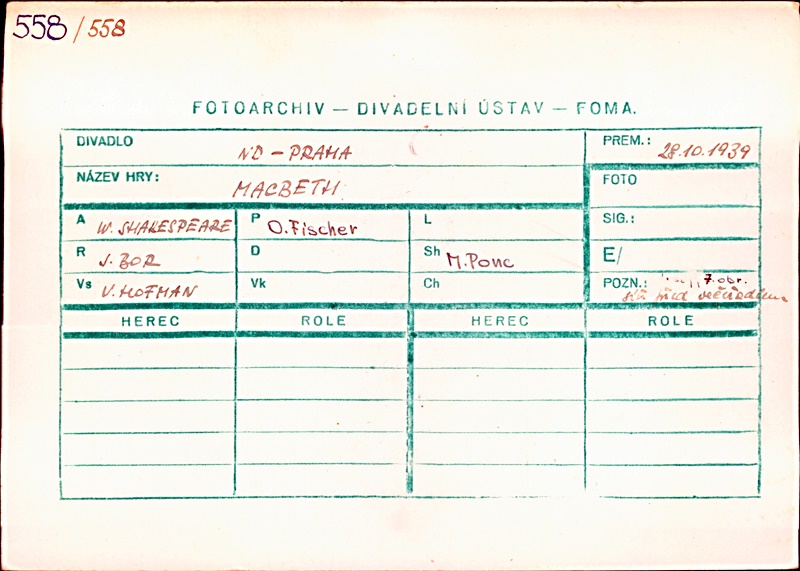 558 / 558
FOTOARCHIV — DIVADELNÍ ÚSTAV — FOMA.
DIVADLO ND – PRAHA PREM.: 28.10.1939
NÁZEV HRY: MACBETH FOTO
A W. SHAKESPEARE P O. Fischer L SIG.:
R J. BOR D Sh M. Ponc E/
Vs V. HOFMAN Vk Ch POZN.: 7. obr.
před
HEREC ROLE HEREC ROLE